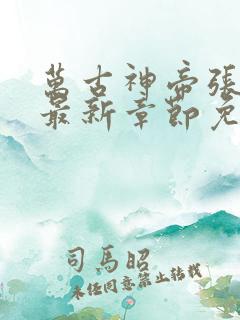 萬古神帝張
最新章節免
司馬昭
未任同意禁止转载